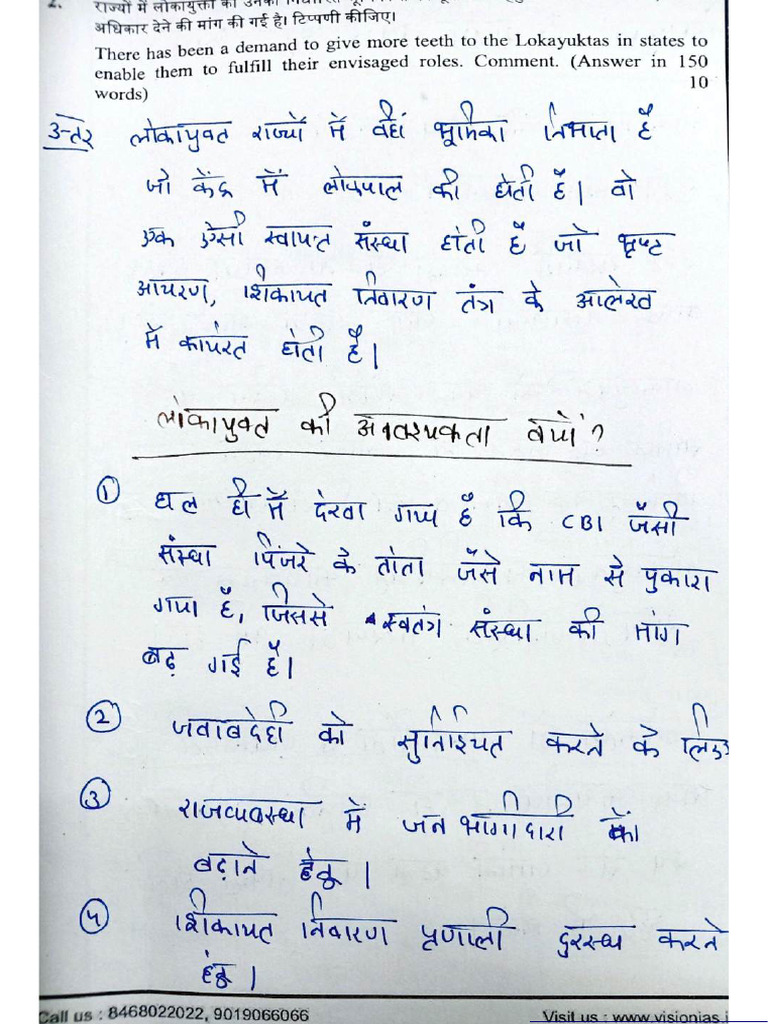 2. राज्यों में लोकायुक्तों को उनकी
अधिकार देने की मांग की गई है। टिप्पणी कीजिए।
There has been a demand to give more teeth to the Lokayuktas in states to
enable them to fulfill their envisaged roles. Comment. (Answer in 150
words) 10
उत्तर लोकायुक्त राज्यों में वहीं भूमिका निभाता है
जो केंद्र में लोकपाल की होती है। वो
एक ऐसी स्वायत संस्था होती है जो भ्रष्ट
आचरण, शिकायत निवारण तंत्र के आलेख
में कार्यरत होती है।
लोकायुक्त की आवश्यकता क्यों?
① हाल ही में देखा गया है कि CBI जैसी
संस्था पिंजरे के तोता जैसे नाम से पुकारा
गया है, जिससे स्वतंत्र संस्था की मांग
बढ़ गई है।
② जवाबदेही को सुनिश्चित करने के लिए
③ राजव्यवस्था में जन भागीदारी को
बढ़ाने हेतु।
④ शिकायत निवारण प्रणाली दुरस्थ करने
हेतु।
Call us : 8468022022, 9019066066 Visit us : www.visionias.i